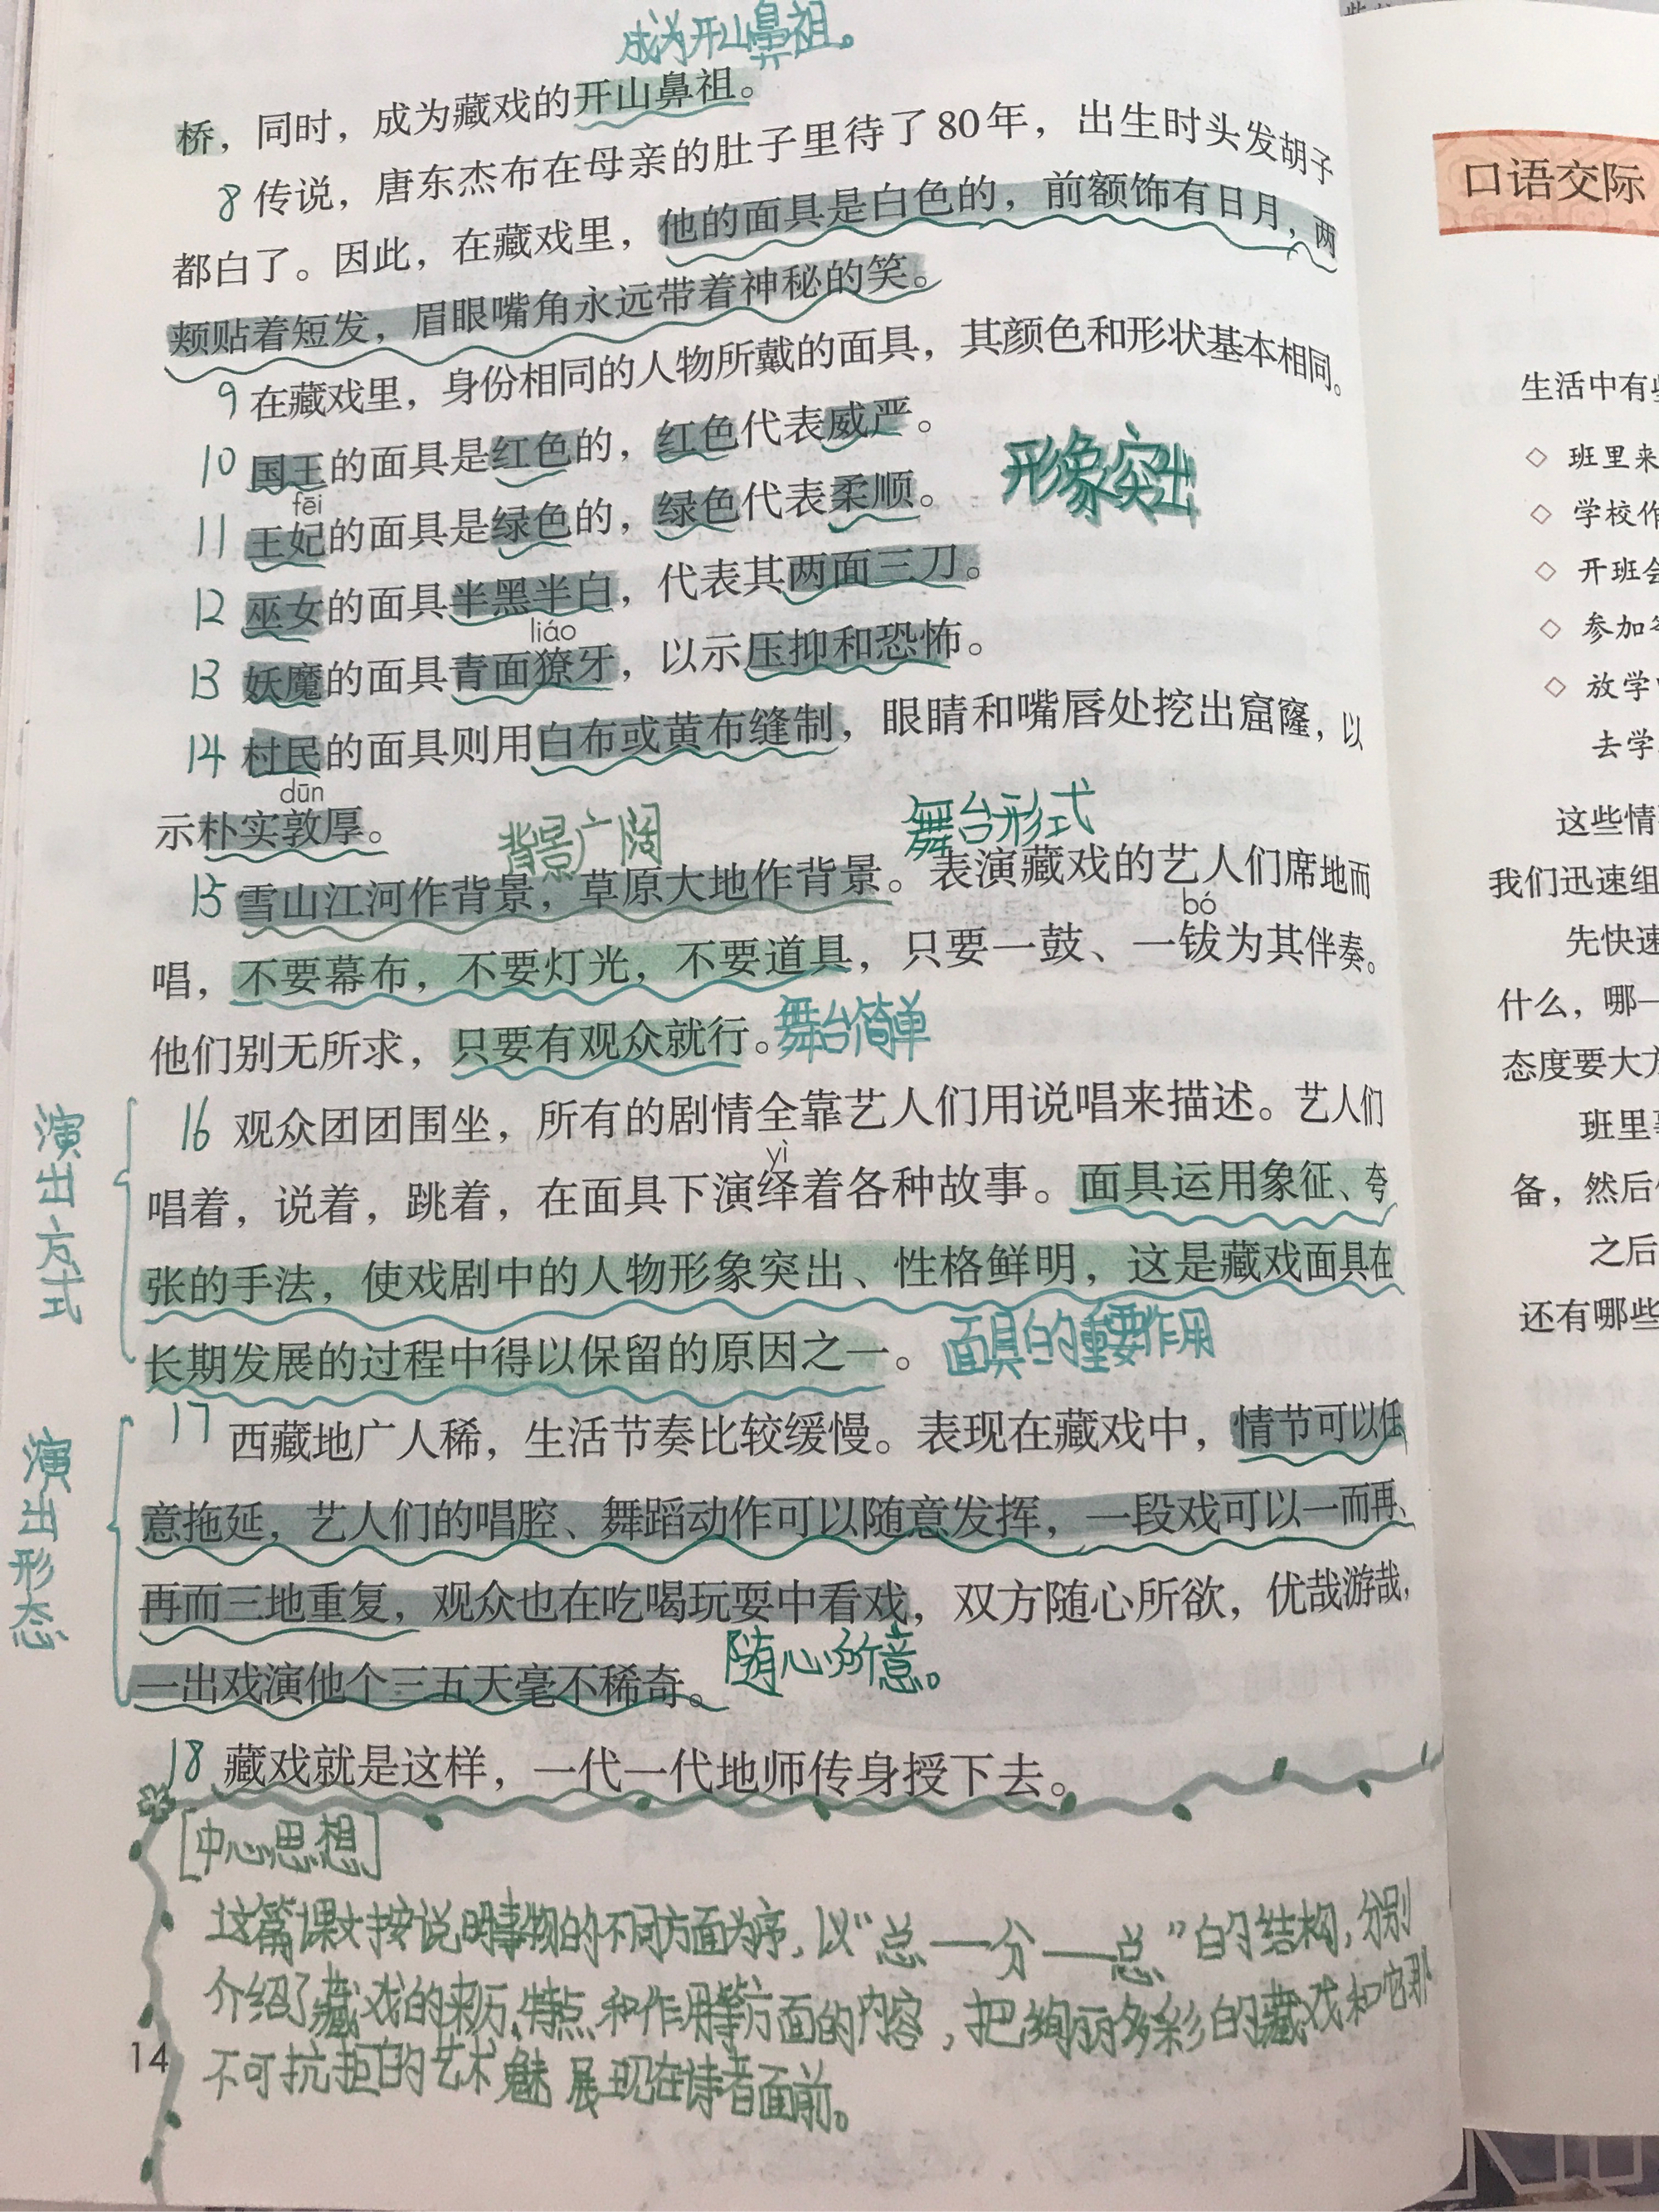 成为开山鼻祖。
桥，同时，成为藏戏的开山鼻祖。
8 传说，唐东杰布在母亲的肚子里待了80年，出生时头发胡子
都白了。因此，在藏戏里，他的面具是白色的，前额饰有日月，两
颊贴着短发，眉眼嘴角永远带着神秘的笑。
9 在藏戏里，身份相同的人物所戴的面具，其颜色和形状基本相同。
10 国王的面具是红色的，红色代表威严。
形象突出
fēi
11 王妃的面具是绿色的，绿色代表柔顺。
12 巫女的面具半黑半白，代表其两面三刀。
liáo
13 妖魔的面具青面獠牙，以示压抑和恐怖。
14 村民的面具则用白布或黄布缝制，眼睛和嘴唇处挖出窟窿，以
dūn
示朴实敦厚。
背景广阔
舞台形式
15 雪山江河作背景，草原大地作背景。表演藏戏的艺人们席地而
bó
唱，不要幕布，不要灯光，不要道具，只要一鼓、一钹为其伴奏。
他们别无所求，只要有观众就行。舞台简单
演出方式
16 观众团团围坐，所有的剧情全靠艺人们用说唱来描述。艺人们
yì
唱着，说着，跳着，在面具下演绎着各种故事。面具运用象征、夸
张的手法，使戏剧中的人物形象突出、性格鲜明，这是藏戏面具在
长期发展的过程中得以保留的原因之一。面具的重要作用
演出形态
17 西藏地广人稀，生活节奏比较缓慢。表现在藏戏中，情节可以任
意拖延，艺人们的唱腔、舞蹈动作可以随意发挥，一段戏可以一而再、
再而三地重复，观众也在吃喝玩耍中看戏，双方随心所欲，优哉游哉，
一出戏演他个三五天毫不稀奇。随心所意。
18 藏戏就是这样，一代一代地师传身授下去。
[中心思想]
这篇课文按说明事物的不同方面为序，以“总——分——总”的结构，分别
介绍了藏戏的来历、特点和作用等方面的内容，把绚丽多彩的藏戏和它那
不可抗拒的艺术魅展现在读者面前。
14
口语交际
生活中有
◇ 班里来
◇ 学校作
◇ 开班会
◇ 参加
◇ 放学
去学
这些情
我们迅速组
先快速
什么，哪一
态度要大方
班里
备，然后
之后
还有哪些